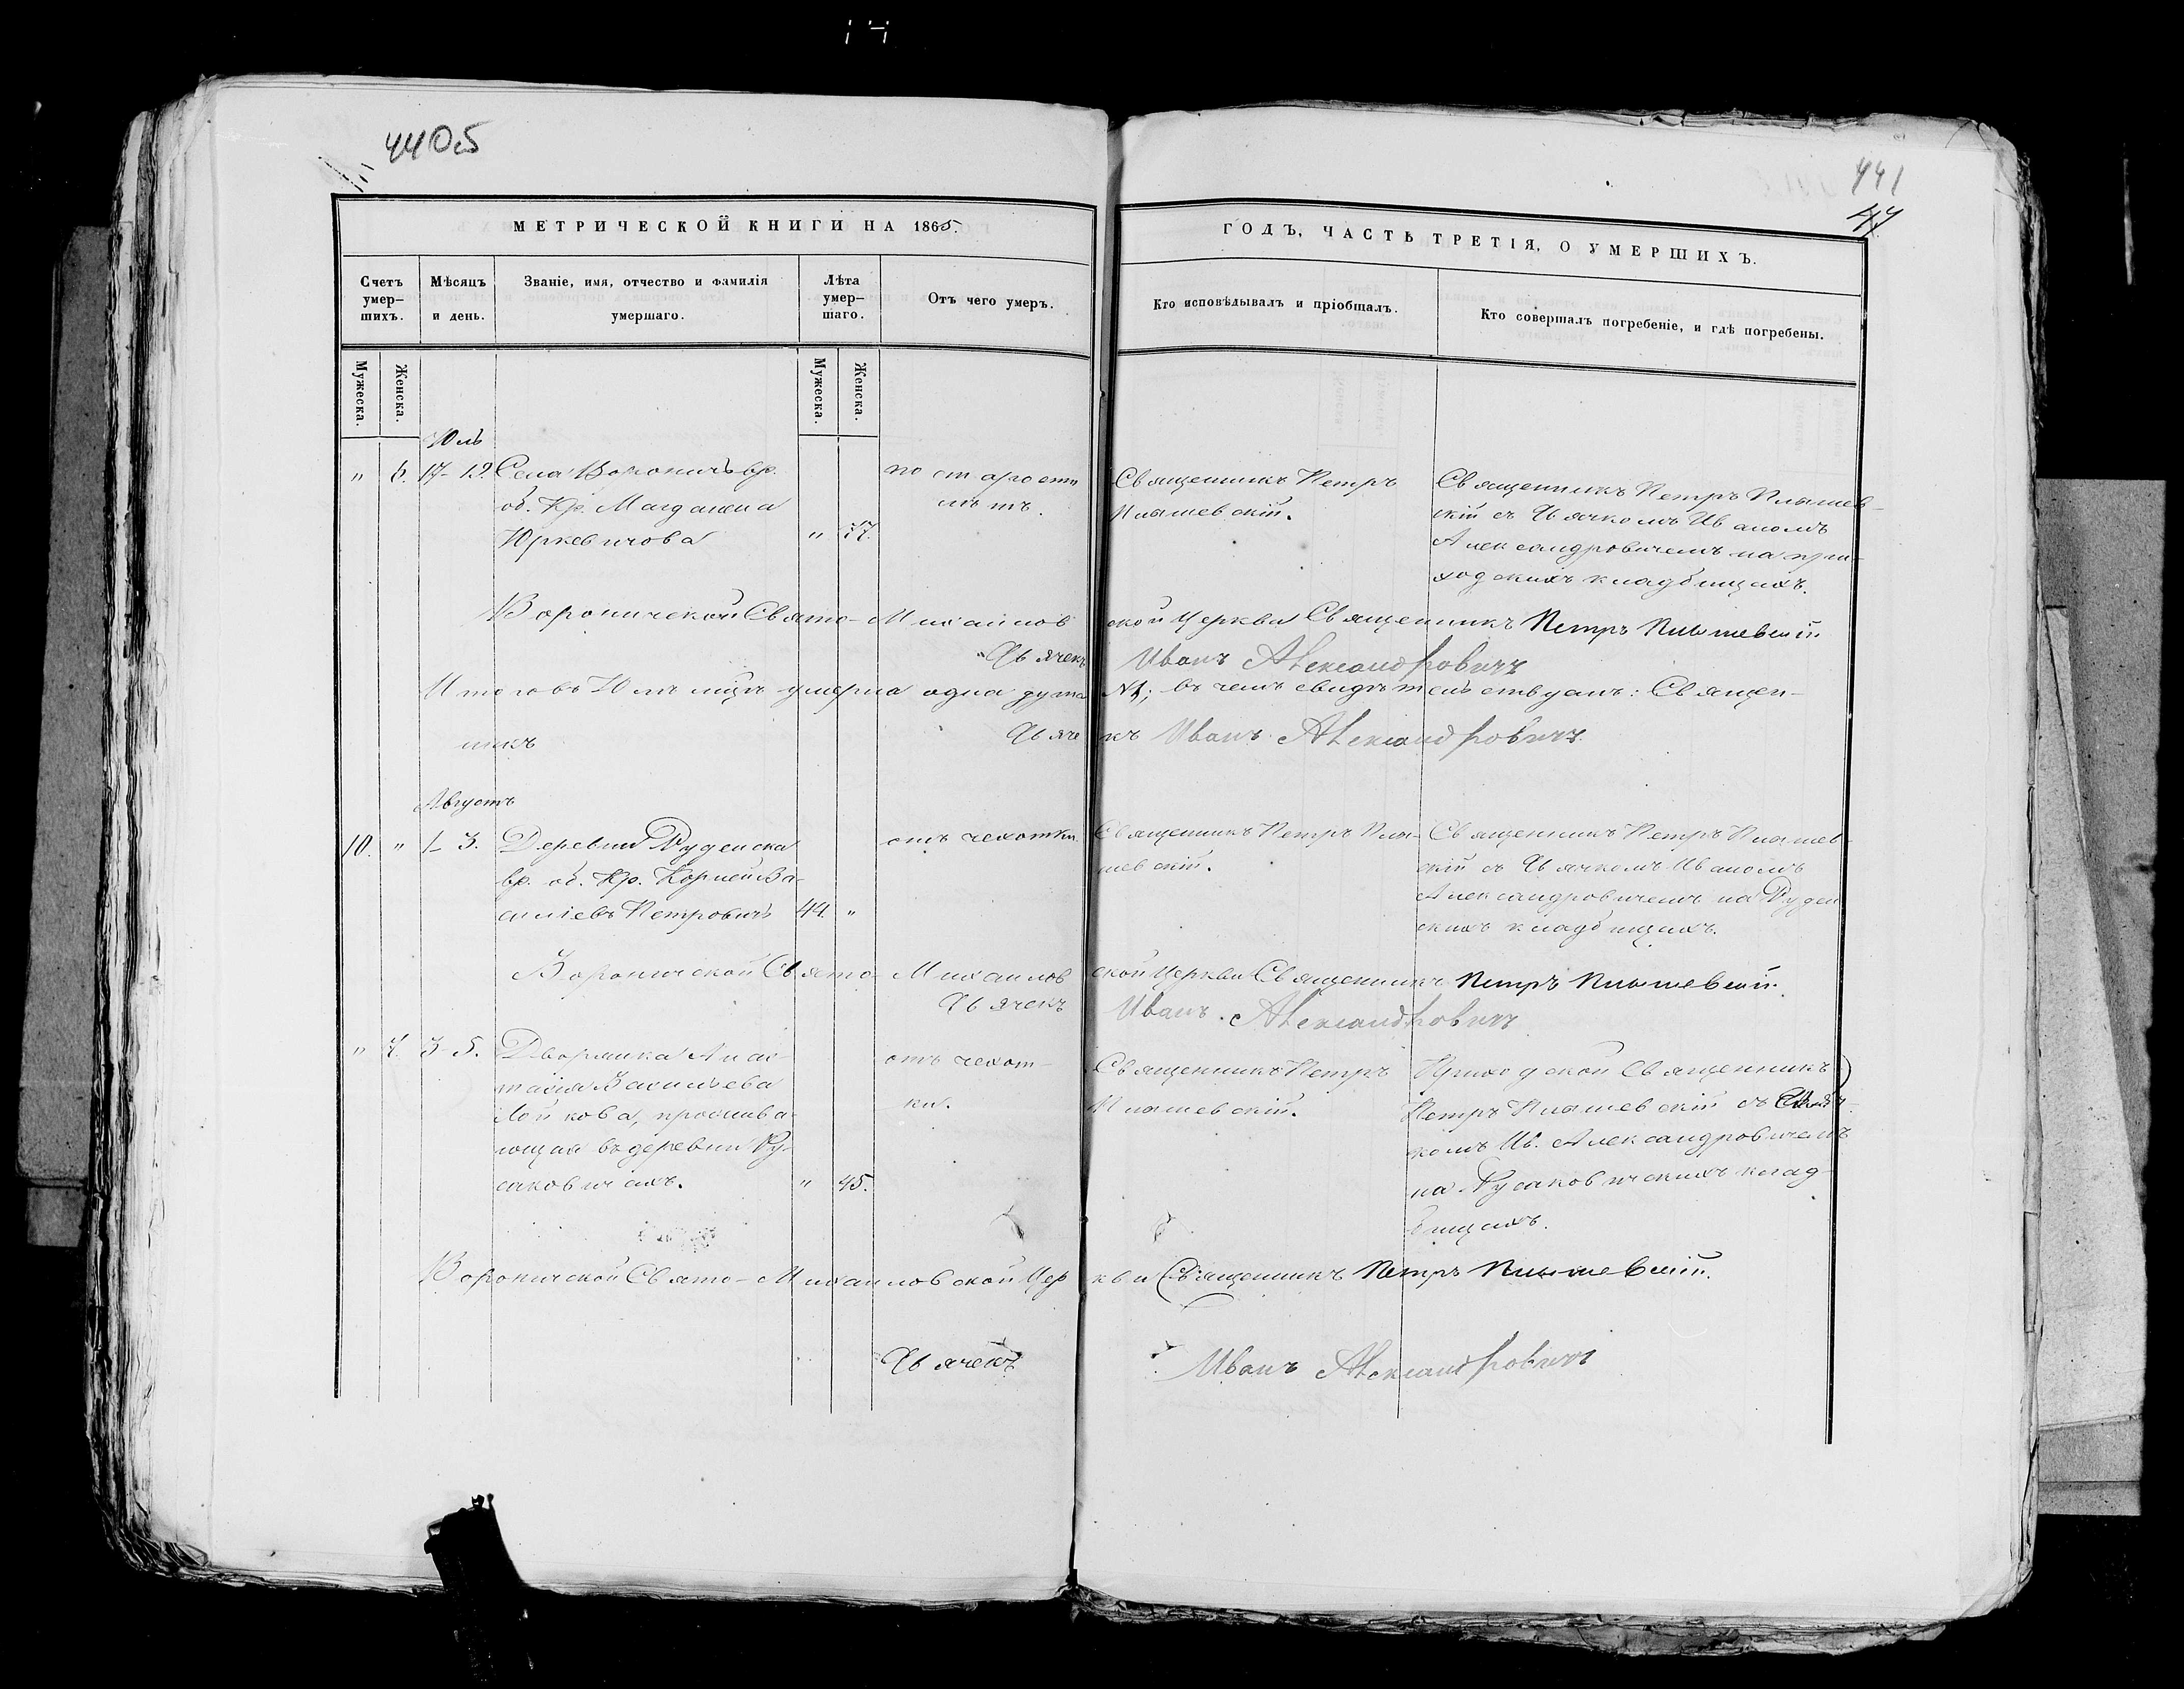 440об
441
МЕТРИЧЕСКОЙ КНИГИ НА 1865.
ГОДЪ, ЧАСТЬ ТРЕТІЯ, О УМЕРШИХЪ.
Счетъ умер-шихъ.
Мѣсяцъ и день.
Званіе, имя, отчество и фамилія умершаго.
Лѣта умер-шаго.
Отъ чего умеръ.
Кто исповѣдывалъ и пріобщалъ.
Кто совершалъ погребеніе, и гдѣ погребены.
Мужеска. Женска. Мужеска. Женска.
Юль
" 6. 17- 19. Села Вороничъ вр.
об. Кр. Магдалена
Юркевичова " 57.
по старости
лѣтъ.
Священникъ Петръ
Плышевскій.
Священникъ Петръ Плышев-
скій съ Дьячкомъ Иваномъ
Александровичемъ на при-
ходскихъ кладбищахъ.
Вороничской Свято-Михайловской Церкви Священникъ Петръ Плышевскій
Дьячекъ Иванъ Александровичъ
Итого въ Юлѣ мцѣ умерла одна душа №1; въ чемъ свидѣтельствуемъ: Священ-
никъ
Дьячекъ Иванъ Александровичъ
Августъ
10. " 1- 3. Деревни Руденска
вр. об. Кр. Корней Ва-
силіевъ Петровичъ 44. "
отъ чехотки.
Священникъ Петръ Плы-
шевскій.
Священникъ Петръ Плышев-
скій съ Дьячкомъ Иваномъ
Александровичемъ на Руден
скихъ кладбищахъ.
Вороничской Свято-Михайловской Церкви Священникъ Петръ Плышевскій.
Дьячекъ Иванъ Александровичъ
" 7. 3- 5. Дворянка Анас-
тасія Васильева
Лойкова, прожива-
ющая въ деревни Ру-
саковичахъ. " 45.
отъ чехот-
ки.
Священникъ Петръ
Плышевскій.
Приходской Священникъ
Петръ Плышевскій съ
комъ Ив. Александровичемъ
на Русаковическихъ клад-
бищахъ.
Вороничской Свято-Михайловской Церкви Священникъ Петръ Плышевскій.
Дьячекъ Иванъ Александровичъ